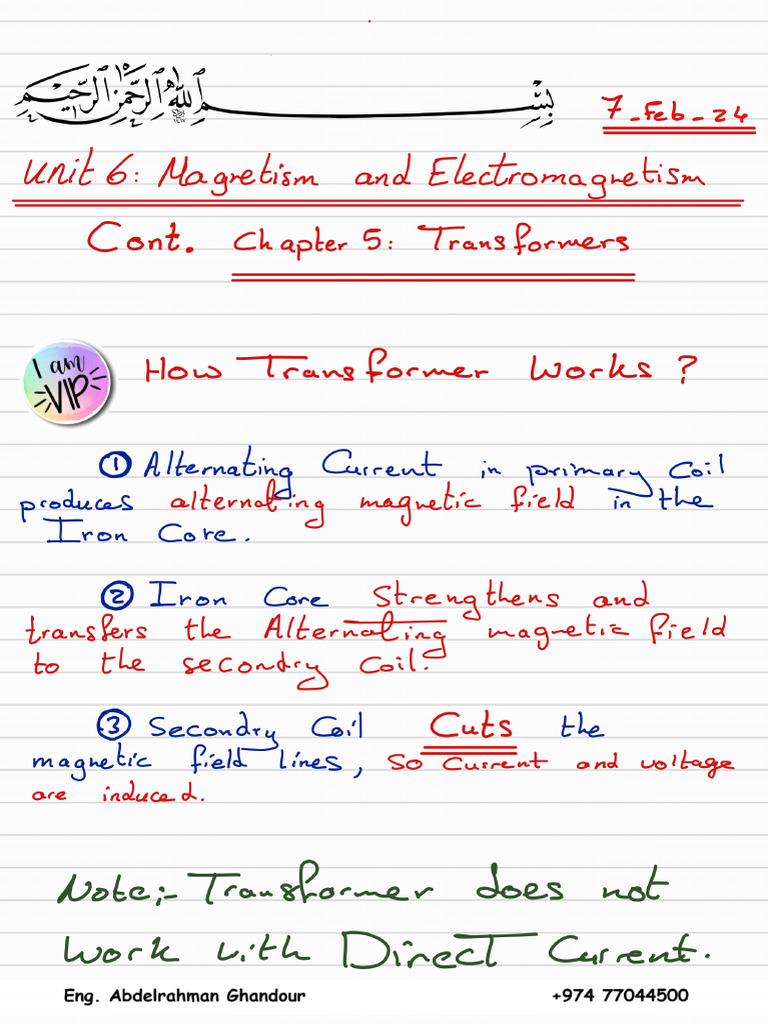 بِسْمِ اللهِ الرَّحْمٰنِ الرَّحِيْمِ
7-Feb-24
Unit 6: Magnetism and Electromagnetism
Cont. Chapter 5: Transformers
I am
VIP
How Transformer Works?
① Alternating Current in primary Coil
produces alternating magnetic field in the
Iron Core.
② Iron Core Strengthens and
transfers the Alternating magnetic field
to the secondry Coil.
③ Secondry Coil Cuts the
magnetic field lines, so Current and voltage
are induced.
Note:- Transformer does not
work with Direct Current.
Eng. Abdelrahman Ghandour +974 77044500